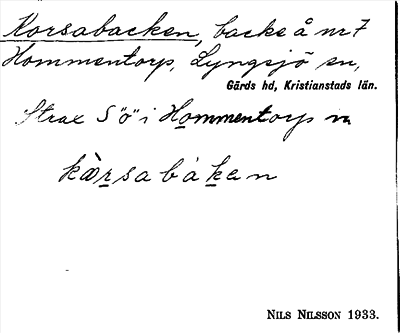 Korsabacken, backe å nr 7
Hommentorp, Lyngsjö sn,
Gärds hd, Kristianstads län.
Strax S "ö" i Hommentorps
kàrsabákan
NILS NILSSON 1933.